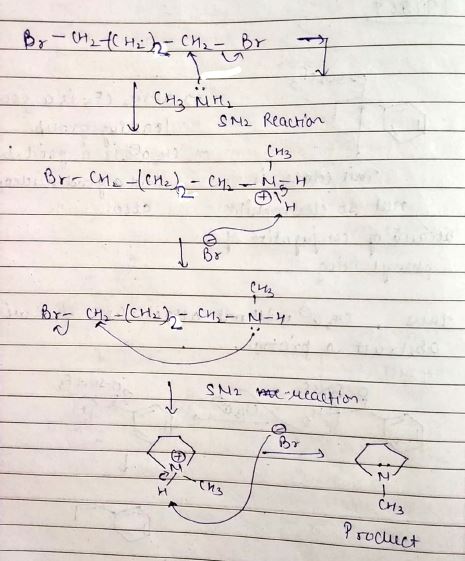 Br – CH2 –(CH2)2 – CH2 – Br →
CH3 N̈H2
SN2 Reaction
CH3
Br – CH2 –(CH2)2 – CH2 – N – H
⊕
H
⊖
Br
CH3
Br – CH2 –(CH2)2 – CH2 – N̈ – H
SN2 reaction.
⊖
Br
⊕
N
H
CH3
N̈
CH3
Product